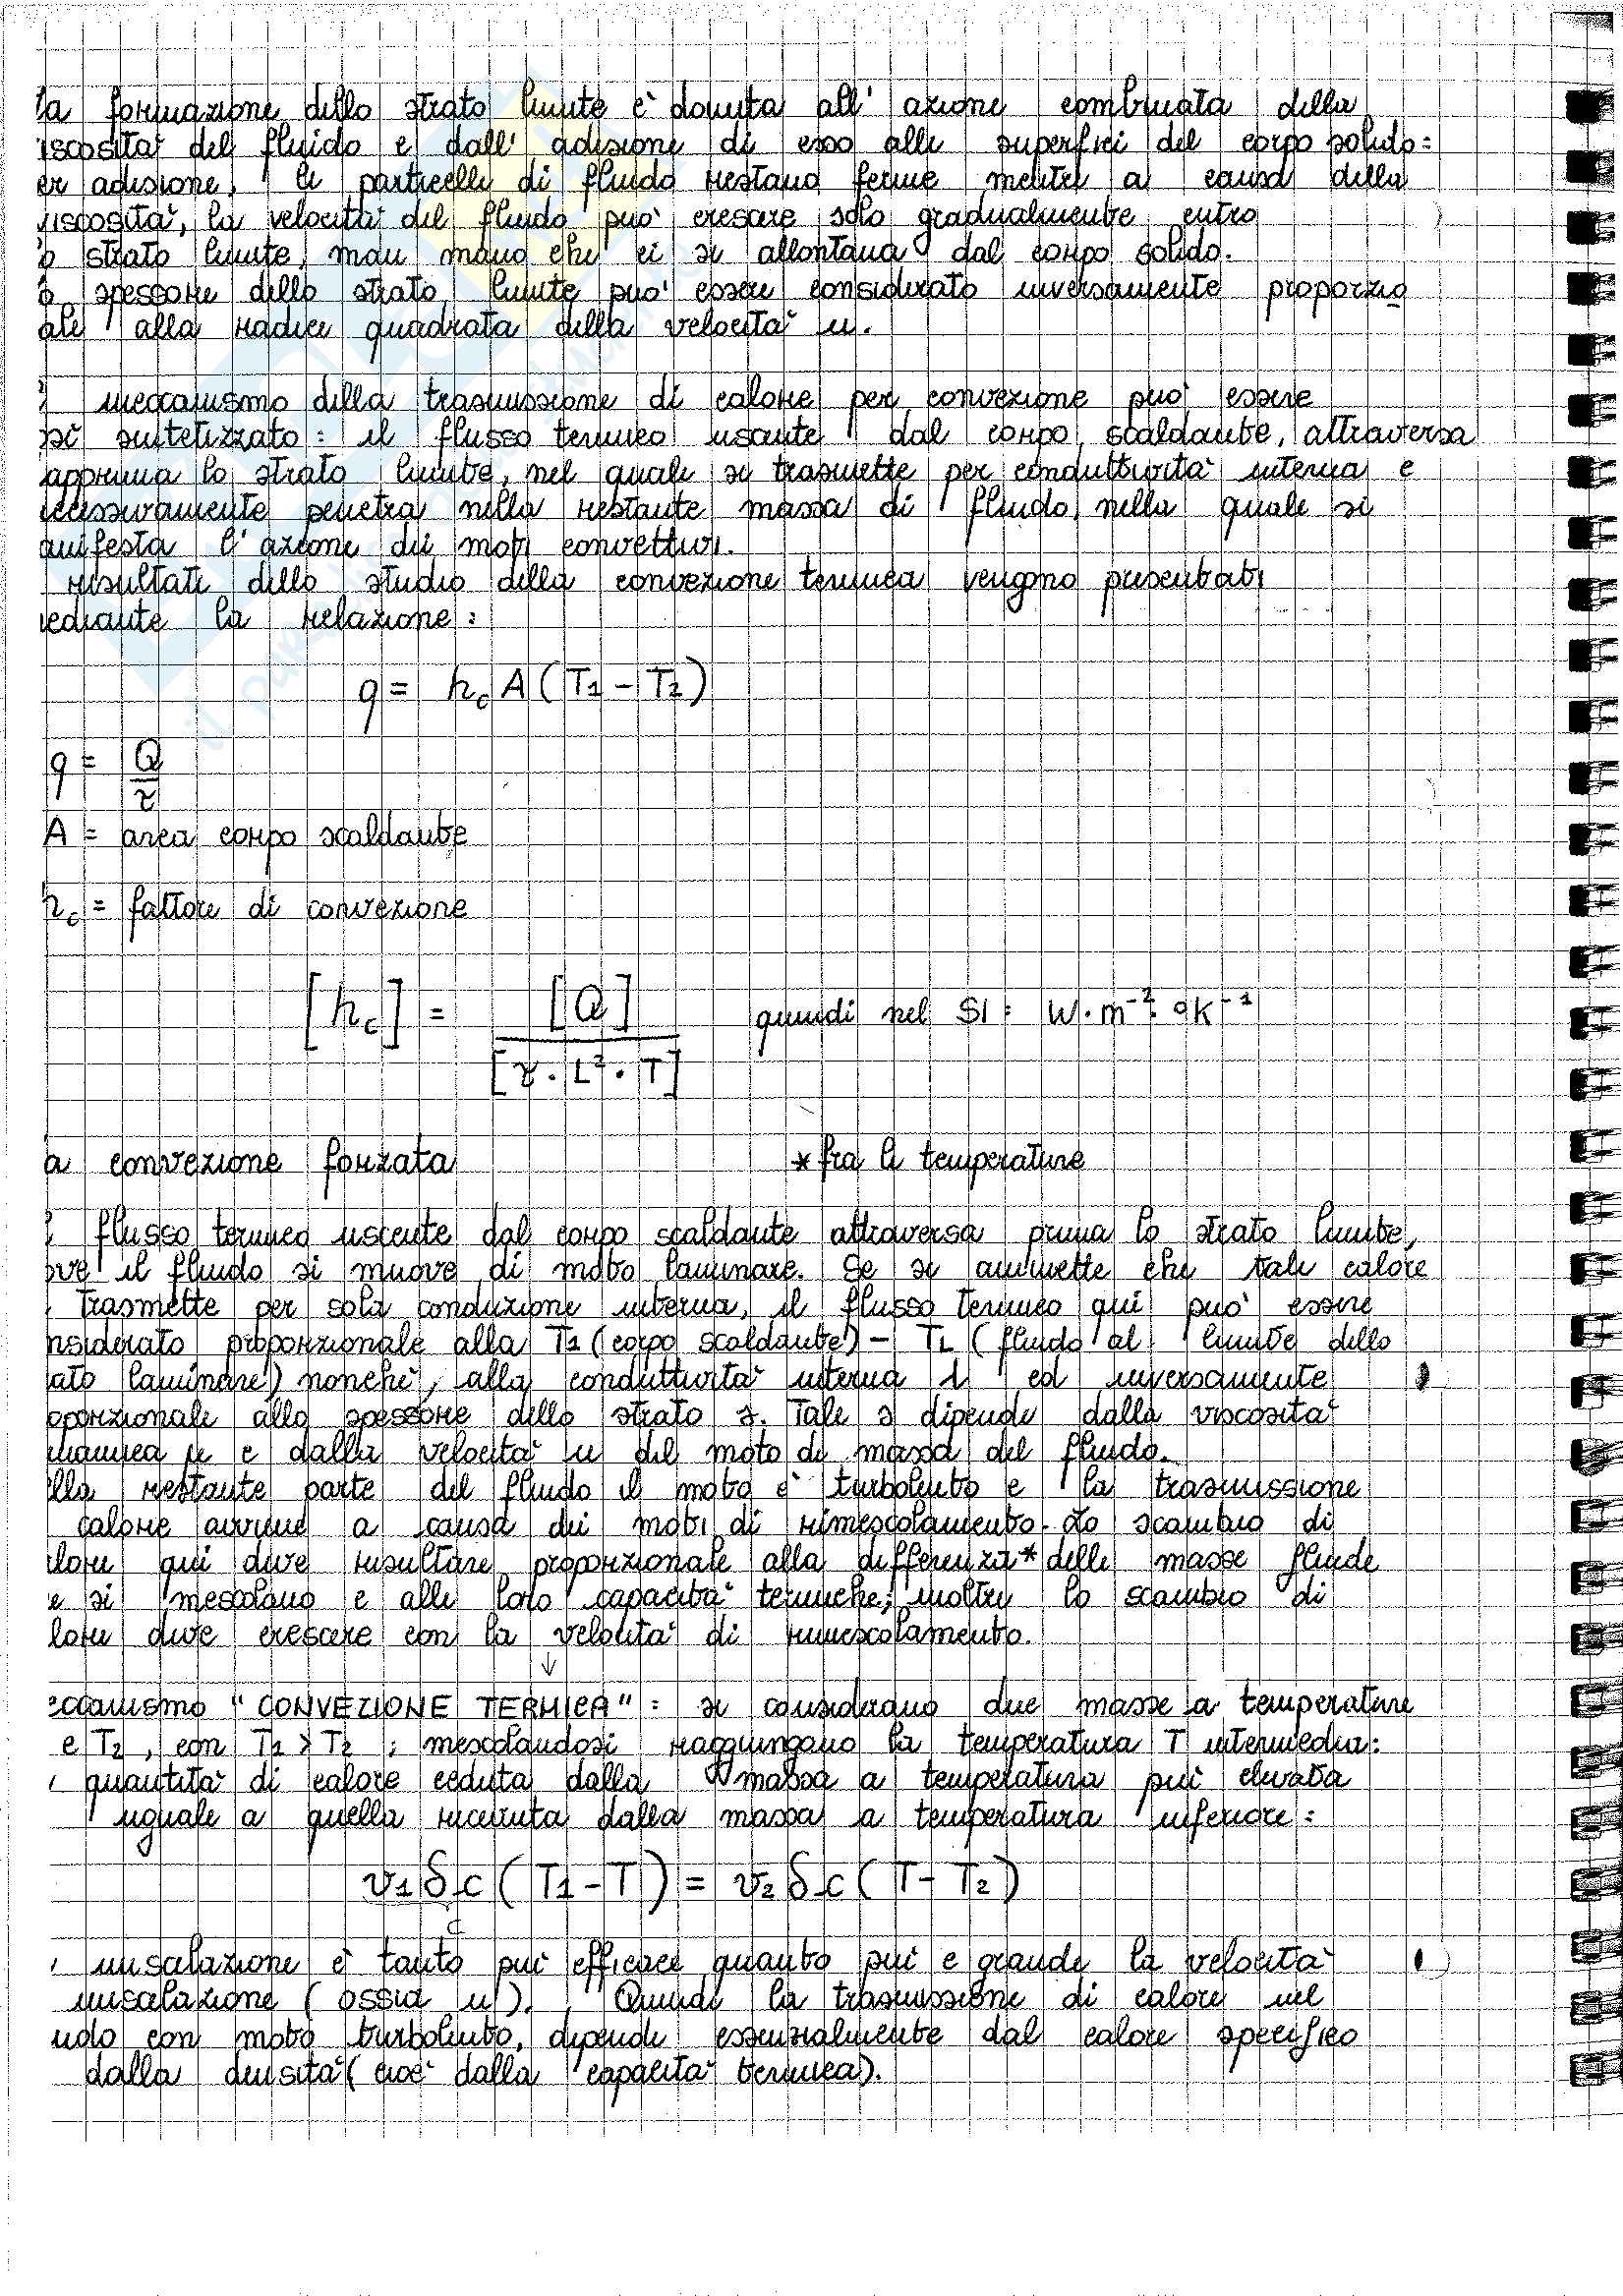 la formazione dello strato limite è dovuta all' azione combinata della
viscosità del fluido e dall' adesione di esso alle superfici del corpo solido:
er adesione, le particelle di fluido restano ferme mentre a causa della
viscosità, la velocità del fluido può crescere solo gradualmente entro
lo strato limite, man mano che ci si allontana dal corpo solido.
lo spessore dello strato limite può essere considerato inversamente proporzio
ale alla radice quadrata della velocità u.
l meccanismo della trasmissione di calore per convezione può essere
sì sintetizzato: il flusso termico uscente dal corpo scaldante, attraversa
apprima lo strato limite, nel quale si trasmette per conduttività interna e
ccessivamente penetra nella restante massa di fluido, nella quale si
anifesta l' azione dei moti convettivi.
risultati dello studio della convezione termica vengono presentati
ediante la relazione:
q = hc A (T1 - T2)
q = Q
τ
A = area corpo scaldante
hc = fattore di convezione
[hc] = [Q] quindi nel SI: W · m⁻² · °K⁻¹
[τ · L² · T]
a convezione forzata * fra le temperature
l flusso termico uscente dal corpo scaldante attraversa prima lo strato limite,
ove il fluido si muove di moto laminare. Se si ammette che tale calore
trasmette per sola conduzione interna, il flusso termico qui può essere
nsiderato proporzionale alla T1 (corpo scaldante) - TL (fluido al limite dello
ato laminare) nonchè, alla conduttività interna λ ed inversamente
oporzionale allo spessore dello strato s. Tale s dipende dalla viscosità
inamica μ e dalla velocità u del moto di massa del fluido.
lla restante parte del fluido il moto è turbolento e la trasmissione
calore avviene a causa dei moti di rimescolamento. Lo scambio di
lore qui deve risultare proporzionale alla differenza* delle masse fluide
e si mescolano e alle loro capacità termiche; inoltre lo scambio di
lore deve crescere con la velocità di rimescolamento.
↓
eccanismo "CONVEZIONE TERMICA": si considerano due masse a temperature
e T2, con T1 > T2; mescolandosi raggiungano la temperatura T intermedia:
quantità di calore ceduta dalla massa a temperatura più elevata
uguale a quella ricevuta dalla massa a temperatura inferiore:
v1 δ c (T1 - T) = v2 δ c (T - T2)
c
miscelazione è tanto più efficace quanto più è grande la velocità
miscelazione (ossia u). Quindi la trasmissione di calore nel
uido con moto turbolento, dipende essenzialmente dal calore specifico
dalla densità (cioè dalla capacità termica).